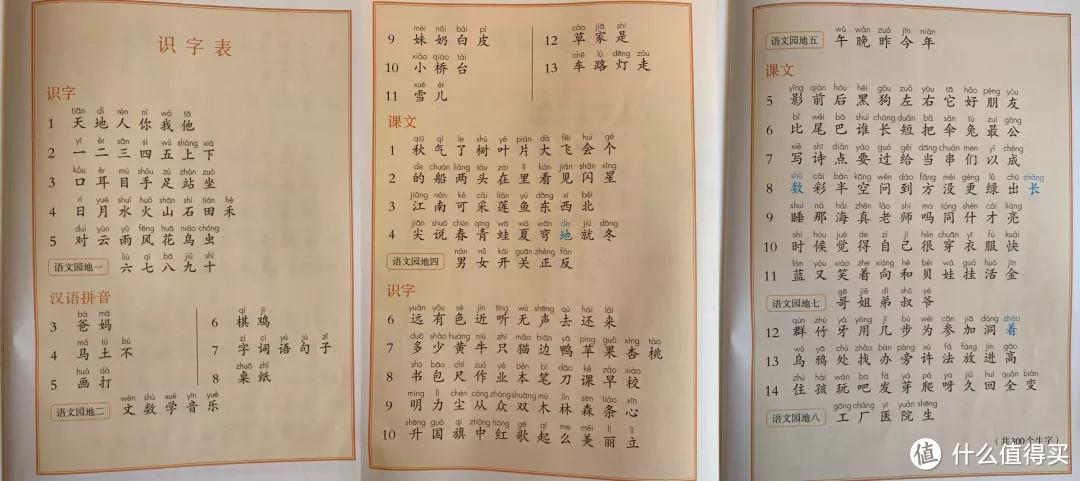 识字表
识字
tiān dì rén nǐ wǒ tā
1 天地人你我他
yī èr sān sì wǔ shàng xià
2 一二三四五上下
kǒu ěr mù shǒu zú zhàn zuò
3 口耳目手足站坐
rì yuè shuǐ huǒ shān shí tián hé
4 日月水火山石田禾
duì yún yǔ fēng huā niǎo chóng
5 对云雨风花鸟虫
liù qī bā jiǔ shí
语文园地一 六七八九十
汉语拼音
bà mā
3 爸妈
mǎ tǔ bù
4 马土不
huà dǎ
5 画打
qí jī
6 棋鸡
zì cí yǔ jù zǐ
7 字词语句子
zhuō zhǐ
8 桌纸
wén shù xué yīn yuè
语文园地二 文数学音乐
mèi nǎi bái pí
9 妹奶白皮
xiǎo qiáo tái
10 小桥台
xuě ér
11 雪儿
cǎo jiā shì
12 草家是
chē lù dēng zǒu
13 车路灯走
课文
qiū qì le shù yè piàn dà fēi huì gè
1 秋气了树叶片大飞会个
de chuán liǎng tóu zài lǐ kàn jiàn shǎn xīng
2 的船两头在里看见闪星
jiāng nán kě cǎi lián yú dōng xī běi
3 江南可采莲鱼东西北
jiān shuō chūn qīng wā xià wān de jiù dōng
4 尖说春青蛙夏弯地就冬
nán nǚ kāi guān zhèng fǎn
语文园地四 男女开关正反
识字
yuǎn yǒu sè jìn tīng wú shēng qù hái lái
6 远有色近听无声去还来
duō shǎo huáng niú zhī māo biān yā píng guǒ xìng táo
7 多少黄牛只猫边鸭苹果杏桃
shū bāo chǐ zuò yè běn bǐ dāo kè zǎo xiào
8 书包尺作业本笔刀课早校
míng lì chén cóng zhòng shuāng mù lín sēn tiáo xīn
9 明力尘从众双木林森条心
shēng guó qí zhōng hóng gē qǐ me měi lì lì
10 升国旗中红歌起么美丽立
wǔ wǎn zuó jīn nián
语文园地五 午晚昨今年
课文
yǐng qián hòu hēi gǒu zuǒ yòu tā hǎo péng yǒu
5 影前后黑狗左右它好朋友
bǐ wěi bā shuí cháng duǎn bǎ sǎn tù zuì gōng
6 比尾巴谁长短把伞兔最公
xiě shī diǎn yào guò gěi dāng chuàn men yǐ chéng
7 写诗点要过给当串们以成
shǔ cǎi bàn kōng wèn dào fāng méi gèng lǜ chū zhǎng
8 数彩半空问到方没更绿出长
shuì nà hǎi zhēn lǎo shī ma tóng shén cái liàng
9 睡那海真老师吗同什才亮
shí hòu jué de zì jǐ hěn chuān yī fú kuài
10 时候觉得自己很穿衣服快
lán yòu xiào zhe xiàng hé bèi wá guà huó jīn
11 蓝又笑着向和贝娃挂活金
gē jiě dì shū yé
语文园地七 哥姐弟叔爷
qún zhú yá yòng jǐ bù wéi cān jiā dòng zháo
12 群竹牙用几步为参加洞着
wū yā chù zhǎo bàn páng xǔ fǎ fàng jìn gāo
13 乌鸦处找办旁许法放进高
zhù hái wán ba fà yá pá ya jiǔ huí quán biàn
14 住孩玩吧发芽爬呀久回全变
gōng chǎng yī yuàn shēng
语文园地八 工厂医院生
（共300个生字）
值 什么值得买